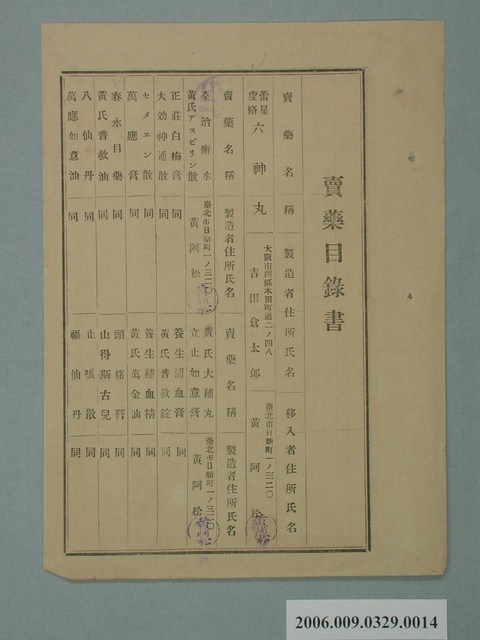 賣藥目錄書
賣藥名稱 製造者住所氏名 移入者住所氏名
虔脩 六神丸 大阪市西區本田町通二ノ四八 吉田倉太郎 臺北市日新町一ノ三二〇 黃阿松
賣藥名稱 製造者住所氏名 賣藥名稱 製造者住所氏名
全治癬水 臺北市日新町一ノ三二〇 黃阿松 黃氏大補丸 臺北市日新町一ノ三二〇 黃阿松
黃氏アスピリン散 立止如意膏
正莊白梅膏 同 養生固血膏 同
大効神通散 同 黃氏普救錠 同
セメエン散 同 養生補血精 同
萬應膏 同 黃氏萬金油 同
春水目藥 同 頭痛膏 同
黃氏普救油 同 山得斯古兒 同
八仙丹 同 止咳散 同
萬應如意油 同 福仙丹 同
2006.009.0329.0014